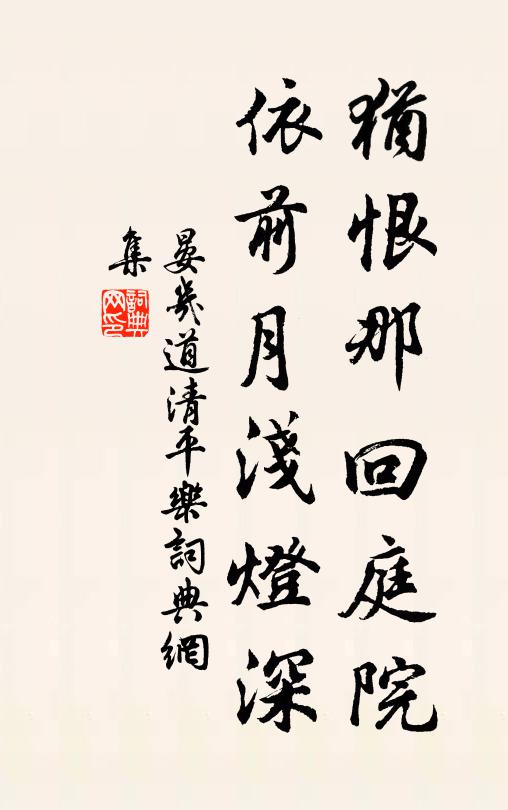 猶恨那回庭院
依前月淺燈深
晏幾道清平樂詞典網
集
詞典
网印